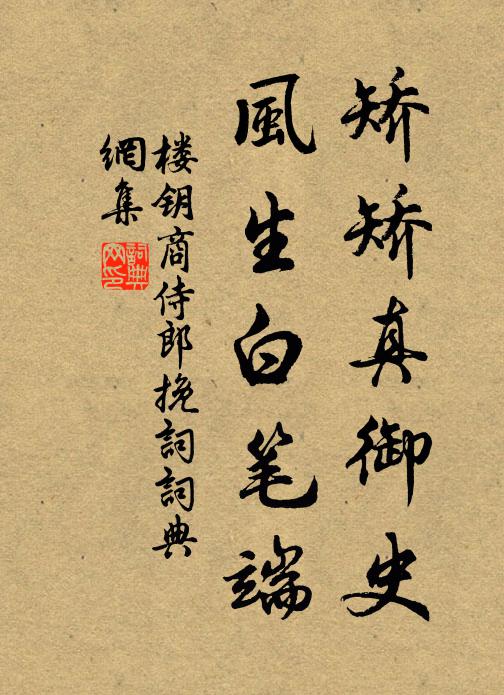 矫矫真御史
風生白笔端
楼钥商侍郎挽詞詞典
網集
詞典
网印